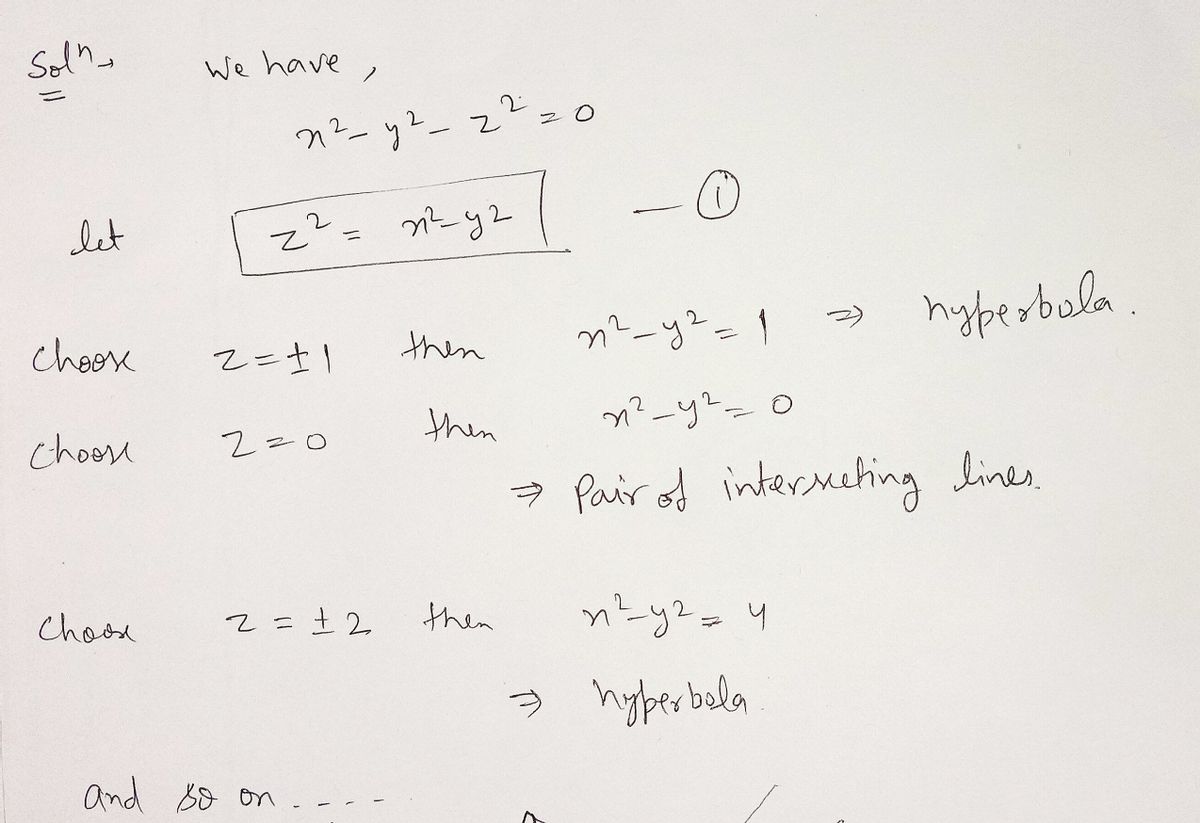 Solⁿ→ We have,
x² - y² - z² = 0
let z² = x² - y² — ①
choose z = ±1 then x² - y² = 1 ⇒ hyperbola.
choose z = 0 then x² - y² = 0
⇒ Pair of intersecting lines.
Choose z = ±2 then x² - y² = 4
⇒ hyperbola.
and so on . - - -